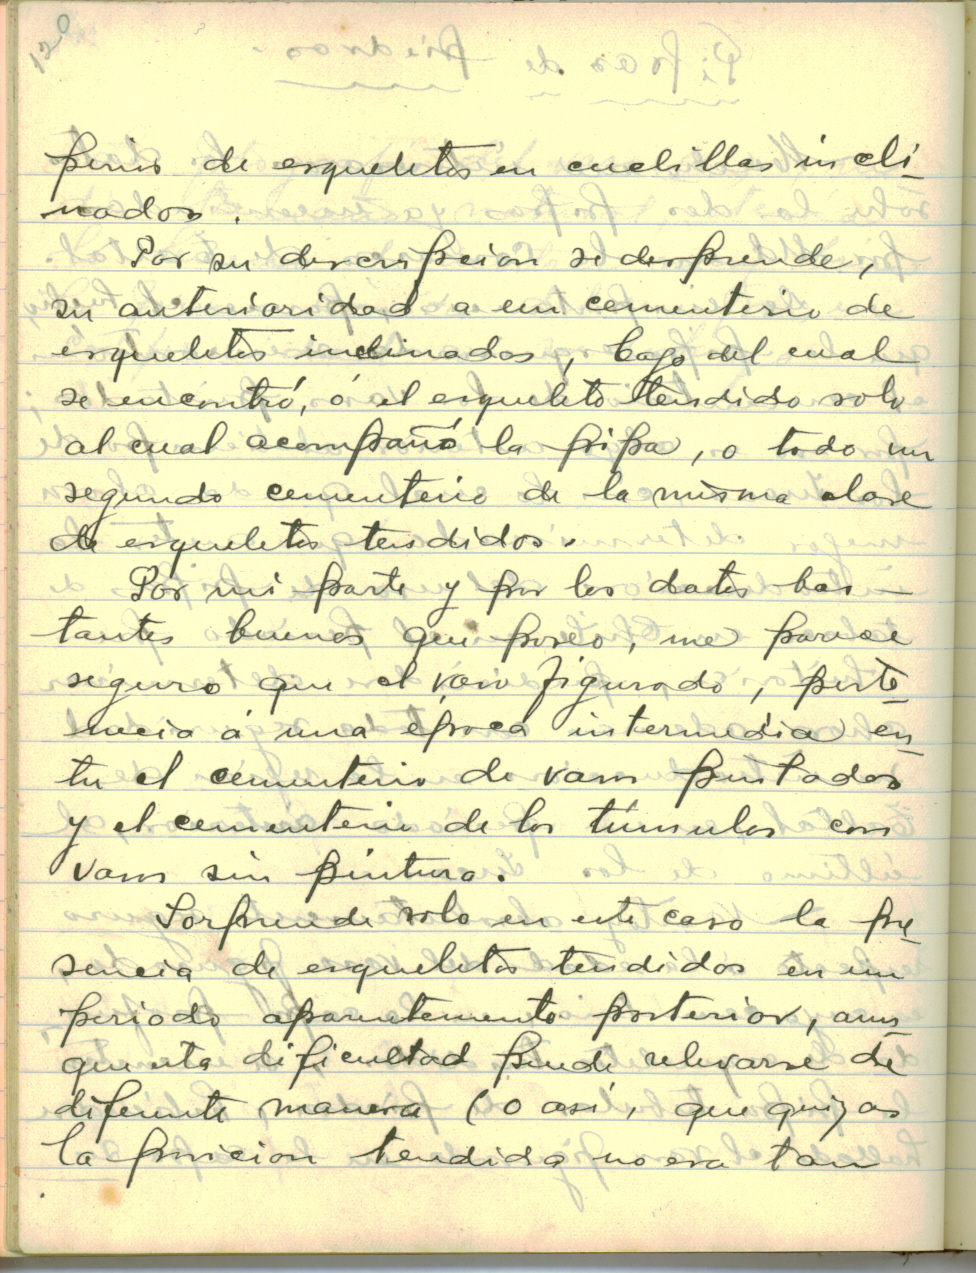 120
perior de esqueletos en cuclillas incli-
nados.
Por su descripcion se desprende,
su anterioridad a un cementerio de
esqueletos inclinados, bajo del cual
se encontró, ó el esqueleto tendido solo
al cual acompañó la pipa, o todo un
segundo cementerio de la misma clase
de esqueletos tendidos.
Por mi parte y por los datos bas-
tantes buenos que poseo, me parece
seguro que el vaso figurado, perte-
necia á una época intermedia en-
tre el cementerio de vasos pintados
y el cementerio de los túmulos con
vasos sin pintura.
Sorprende solo en este caso la pre-
sencia de esqueletos tendidos en un
periodo aparentemente posterior, aun-
que esta dificultad puede relevarse de
diferente manera (o asi, que quizas
la posicion tendida no era tan